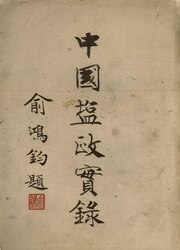 中國盐政實錄
俞鴻鈞題